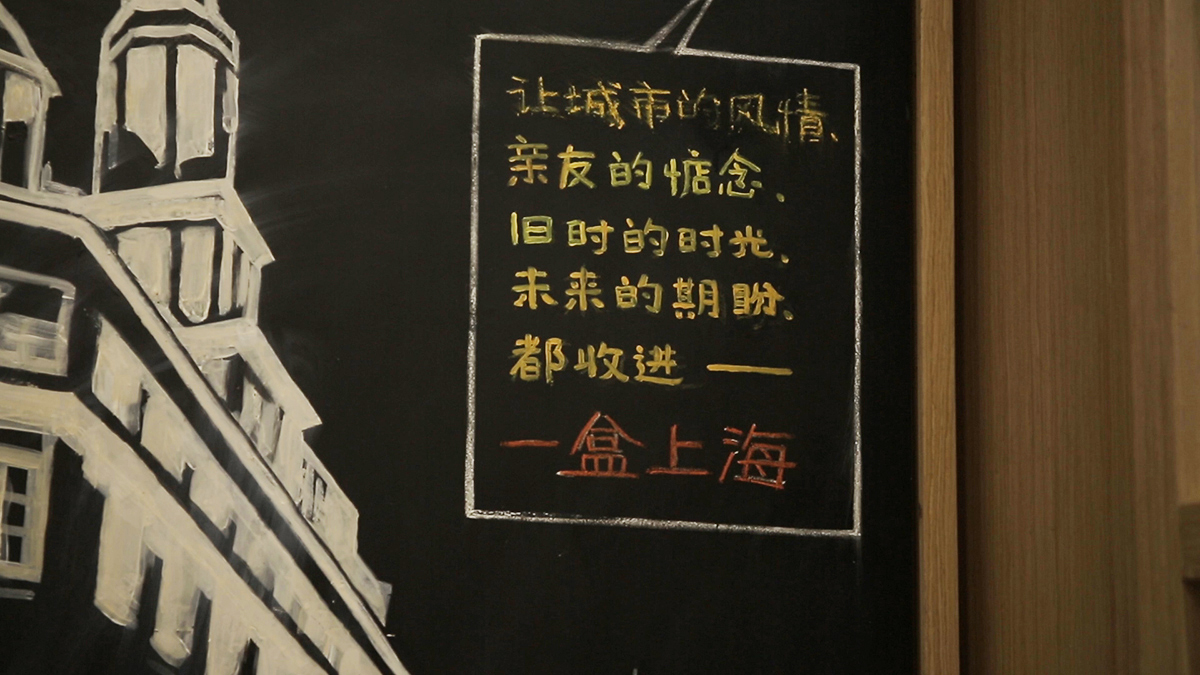 让城市的风情、
亲友的惦念、
旧时的时光、
未来的期盼、
都收进——
一盒上海